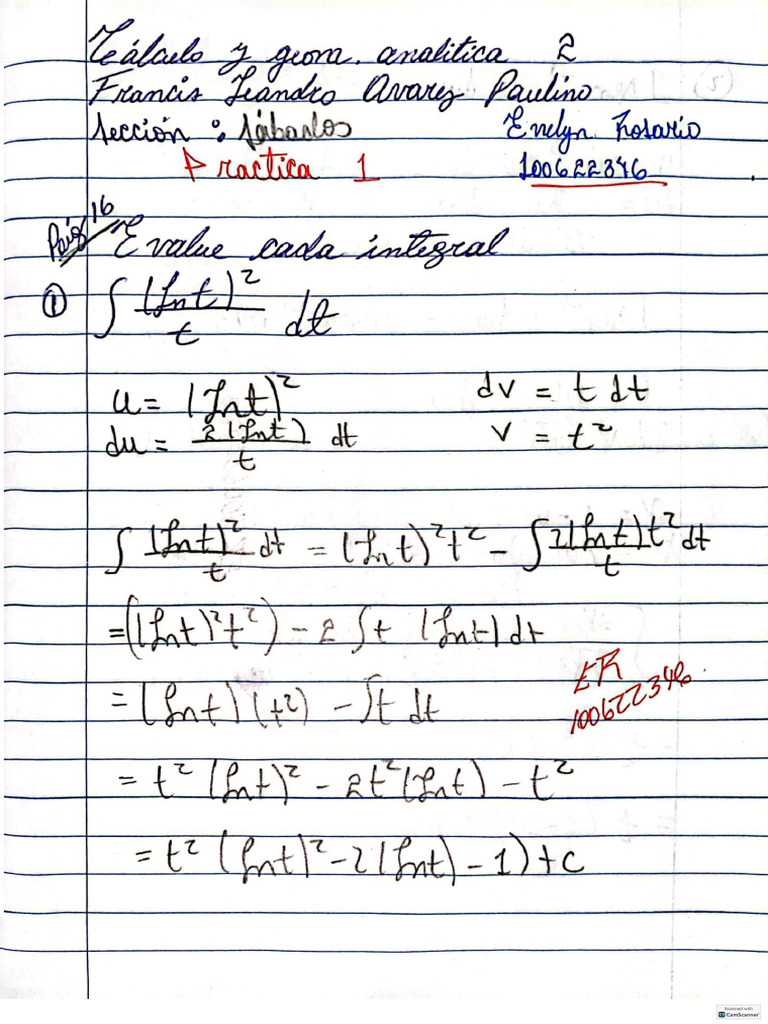 Cálculo y geom. analitica 2
Francis Leandro Avarez Paulino
Sección : Sábados Evelyn Rosario
Practica 1 100622346
Pág 16 Evalue cada integral
① ∫ (Lnt)² / t dt
u = (Lnt)² dv = t dt
du = 2(Lnt) / t dt v = t²
∫ (Lnt)² / t dt = (Lnt)² t² - ∫ 2(Lnt) t² / t dt
= ((Lnt)² t²) - 2 ∫ t (Lnt) dt
= (Lnt) (t²) - ∫ t dt
ER
100622346
= t² (Lnt)² - 2t² (Lnt) - t²
= t² (Lnt)² - 2(Lnt) - 1) + c
Scanned with
CS CamScanner